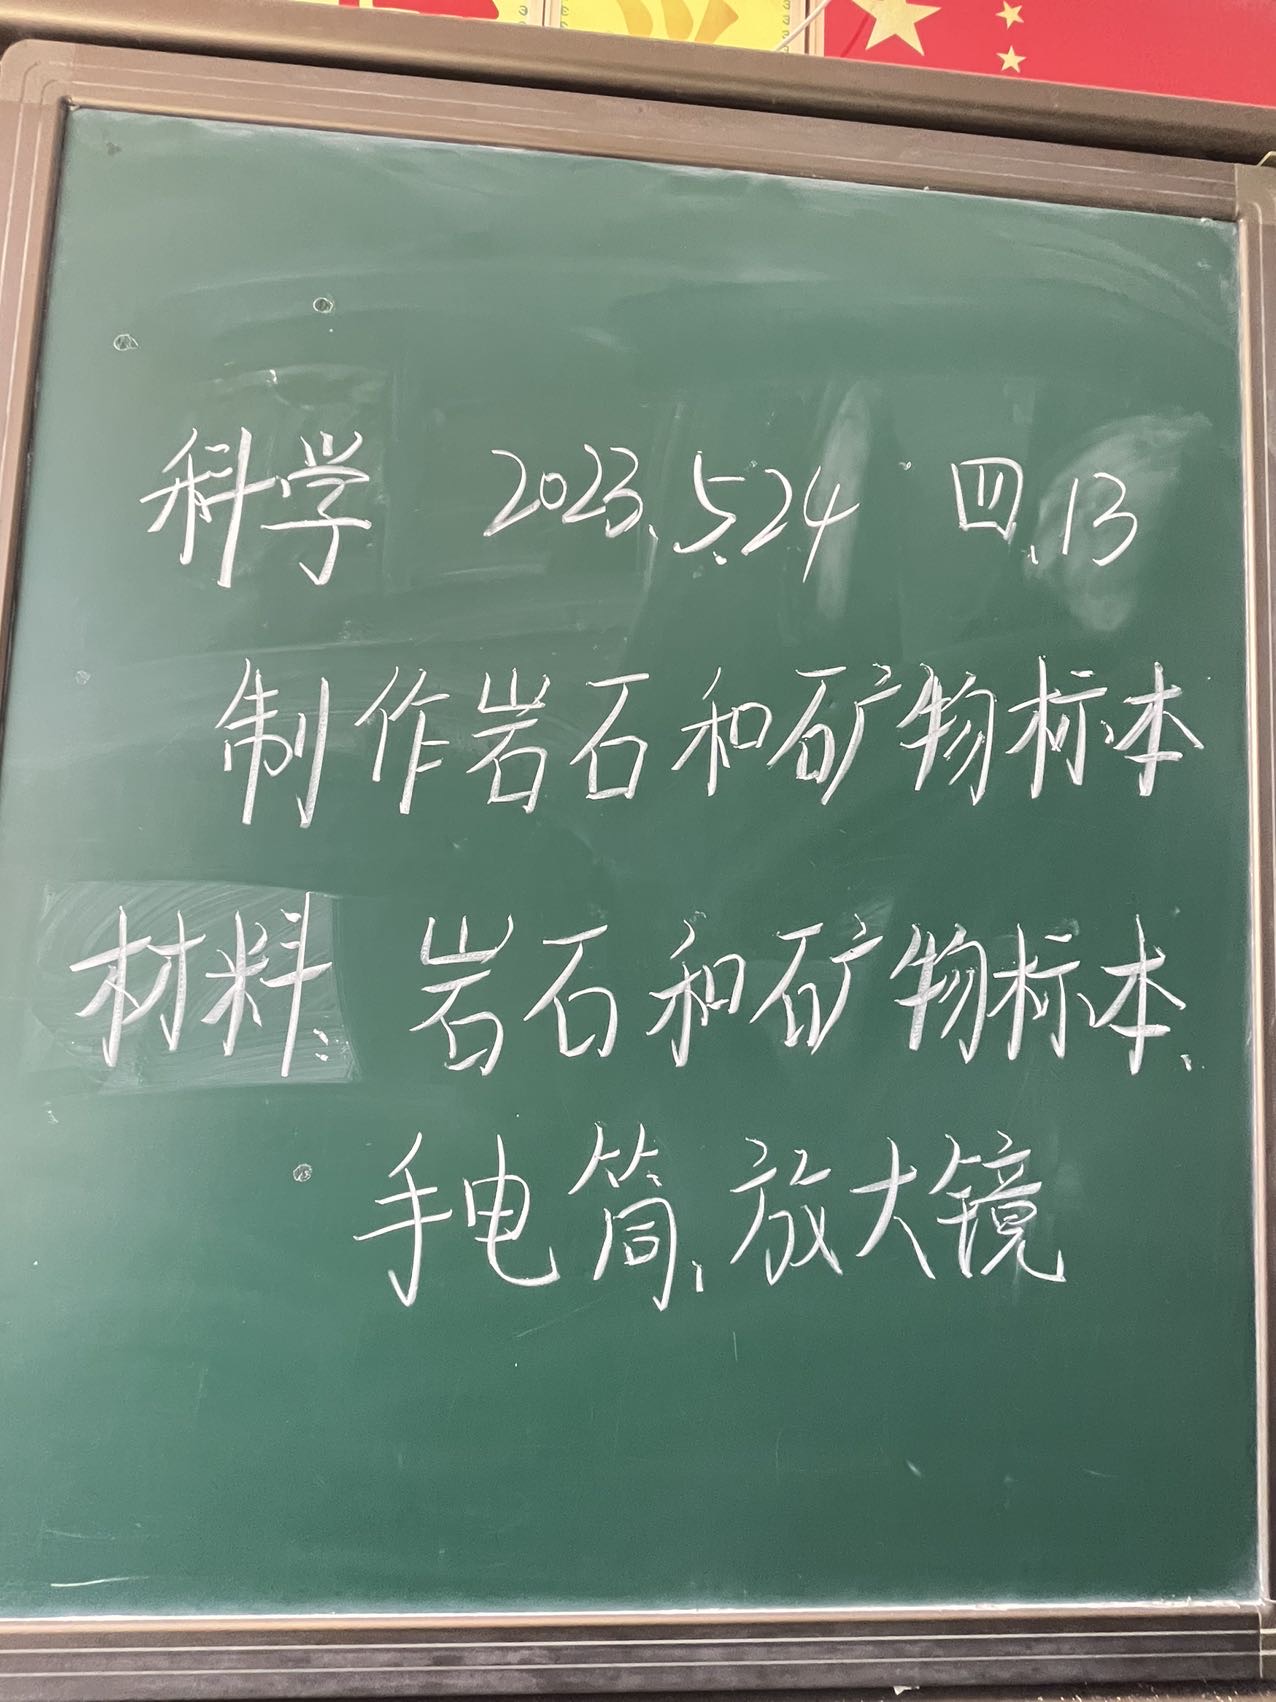 科学 2023.5.24 四.13
制作岩石和矿物标本
材料: 岩石和矿物标本、
手电筒、放大镜